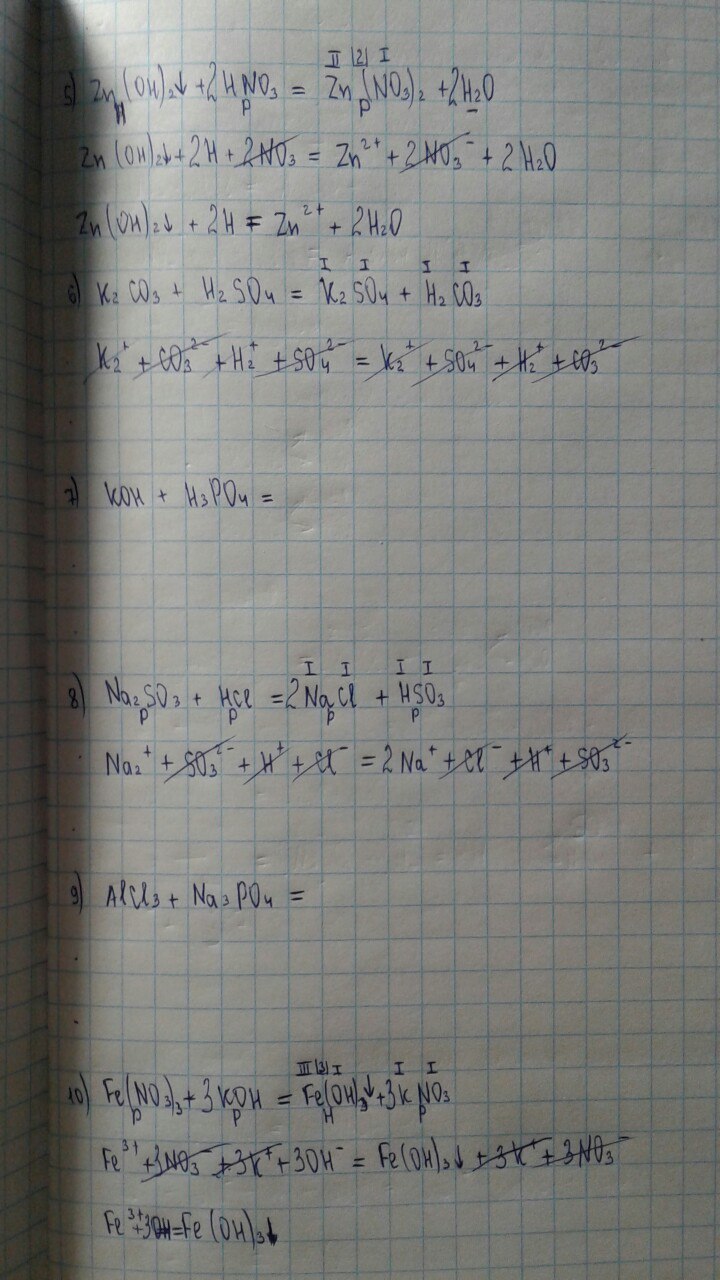 II |2| I
5) Zn(OH)₂↓ + 2HNO₃ = Zn(NO₃)₂ + 2H₂O
Н р р
Zn(OH)₂↓ + 2H + 2NO₃ = Zn²⁺ + 2NO₃⁻ + 2H₂O
Zn(OH)₂↓ + 2H = Zn²⁺ + 2H₂O
I I I I
6) K₂CO₃ + H₂SO₄ = K₂SO₄ + H₂CO₃
K₂⁺ + CO₃²⁻ + H₂⁺ + SO₄²⁻ = K₂⁺ + SO₄²⁻ + H₂⁺ + CO₃²⁻
7) KOH + H₃PO₄ =
I I I I
8) Na₂SO₃ + HCl = 2NaCl + HSO₃
р р р р
Na₂⁺ + SO₃²⁻ + H⁺ + Cl⁻ = 2Na⁺ + Cl⁻ + H⁺ + SO₃²⁻
9) AlCl₃ + Na₃PO₄ =
III |3| I I I
10) Fe(NO₃)₃ + 3KOH = Fe(OH)₃↓ + 3KNO₃
р р Н р
Fe³⁺ + 3NO₃⁻ + 3K⁺ + 3OH⁻ = Fe(OH)₃↓ + 3K⁺ + 3NO₃⁻
Fe³⁺ + 3OH = Fe(OH)₃↓